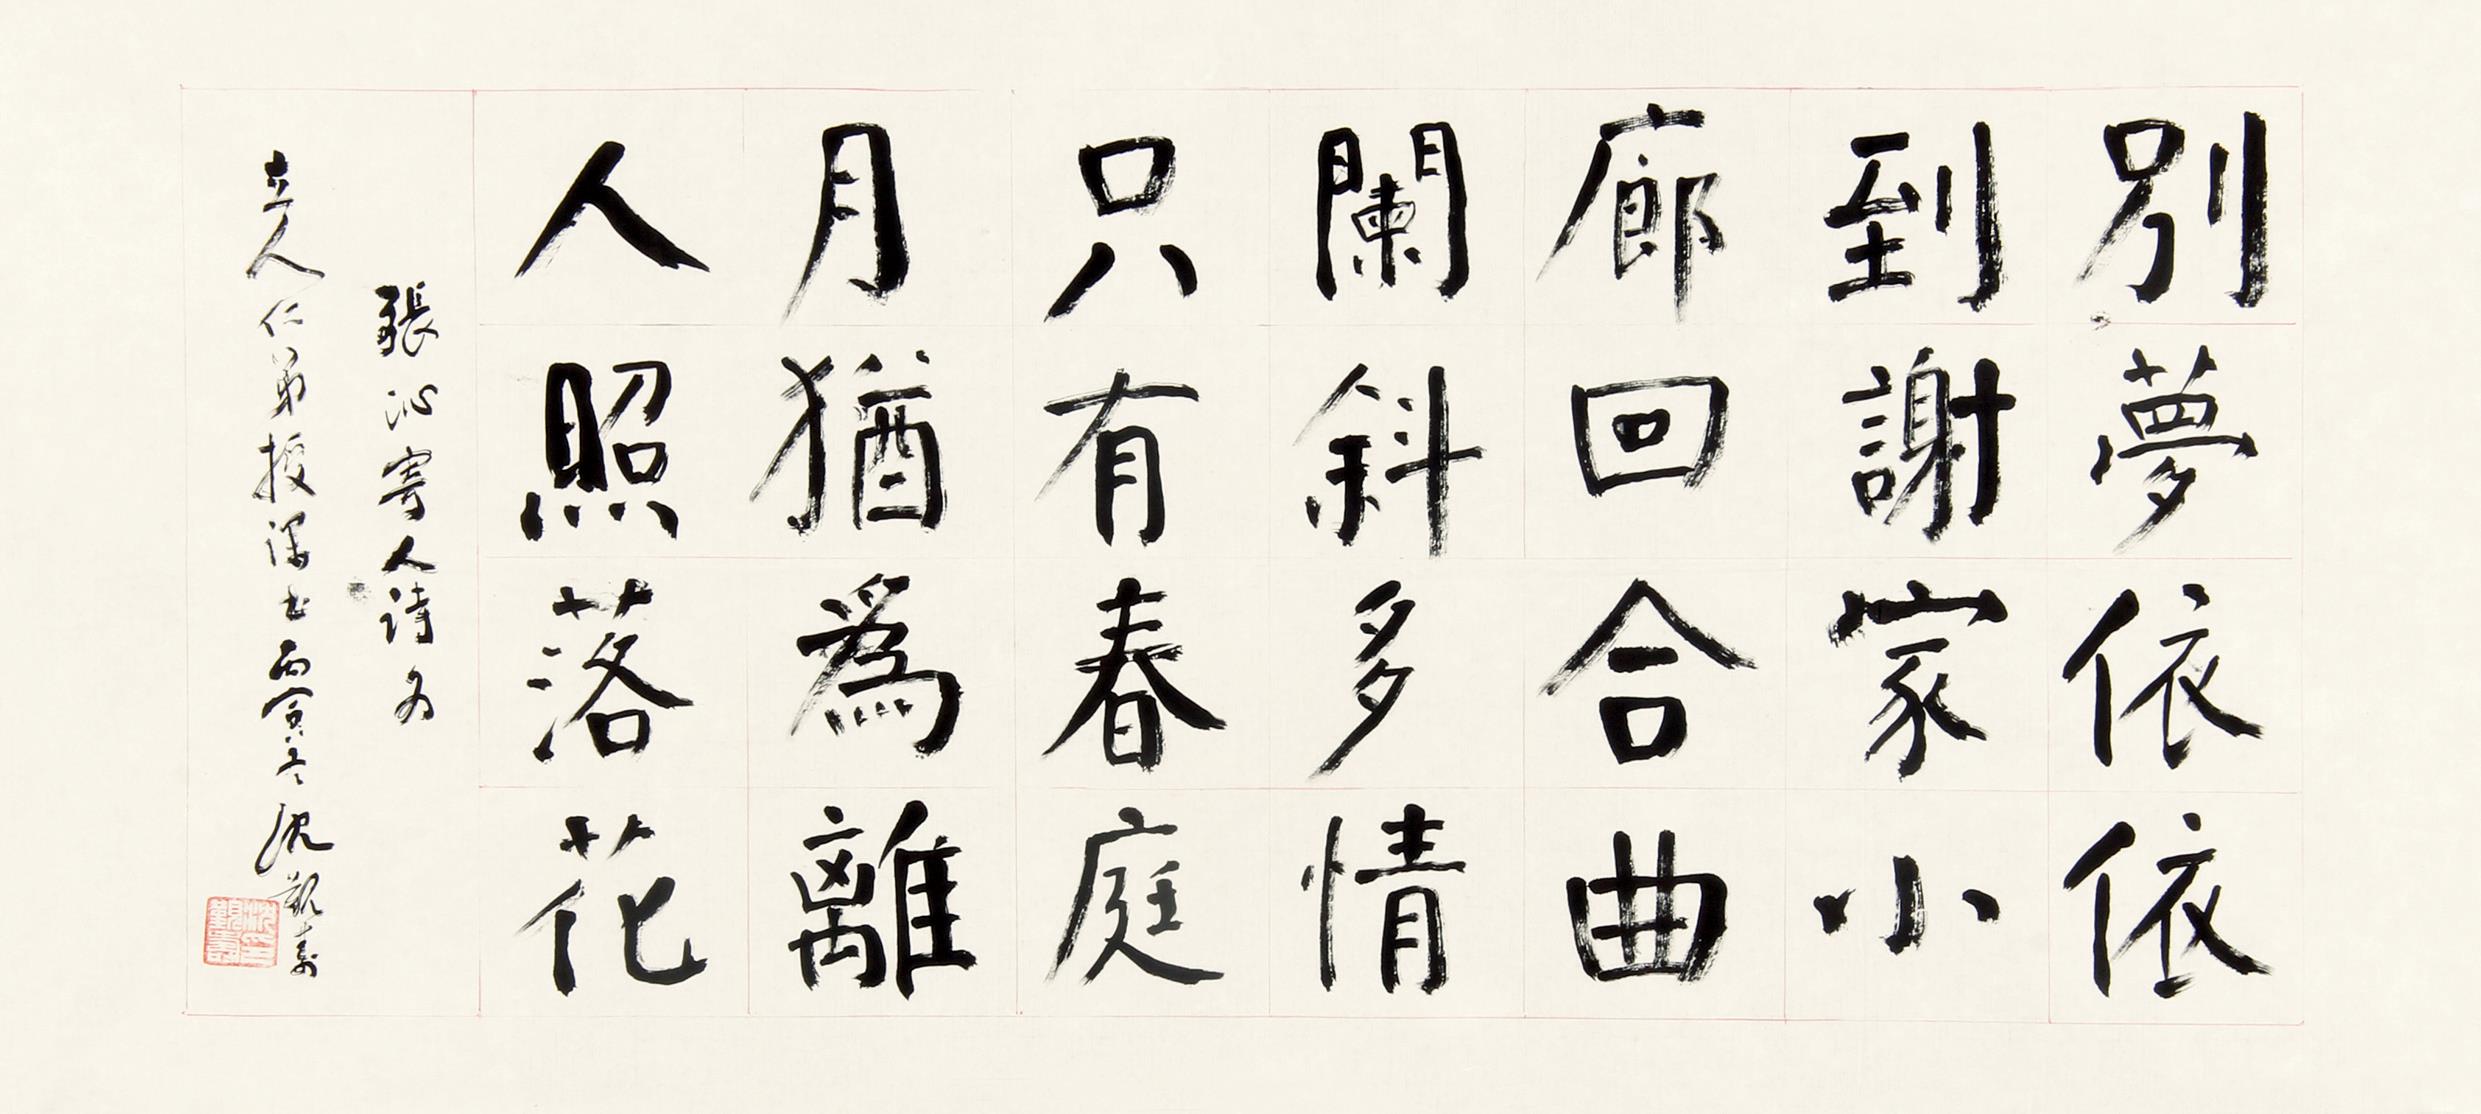 別夢依依
到謝家小
廊回合曲
闌斜多情
只有春庭
月猶為離
人照落花
張泌寄人詩為
立人仁弟授課書丙寅冬沈觀壽
沈觀壽印